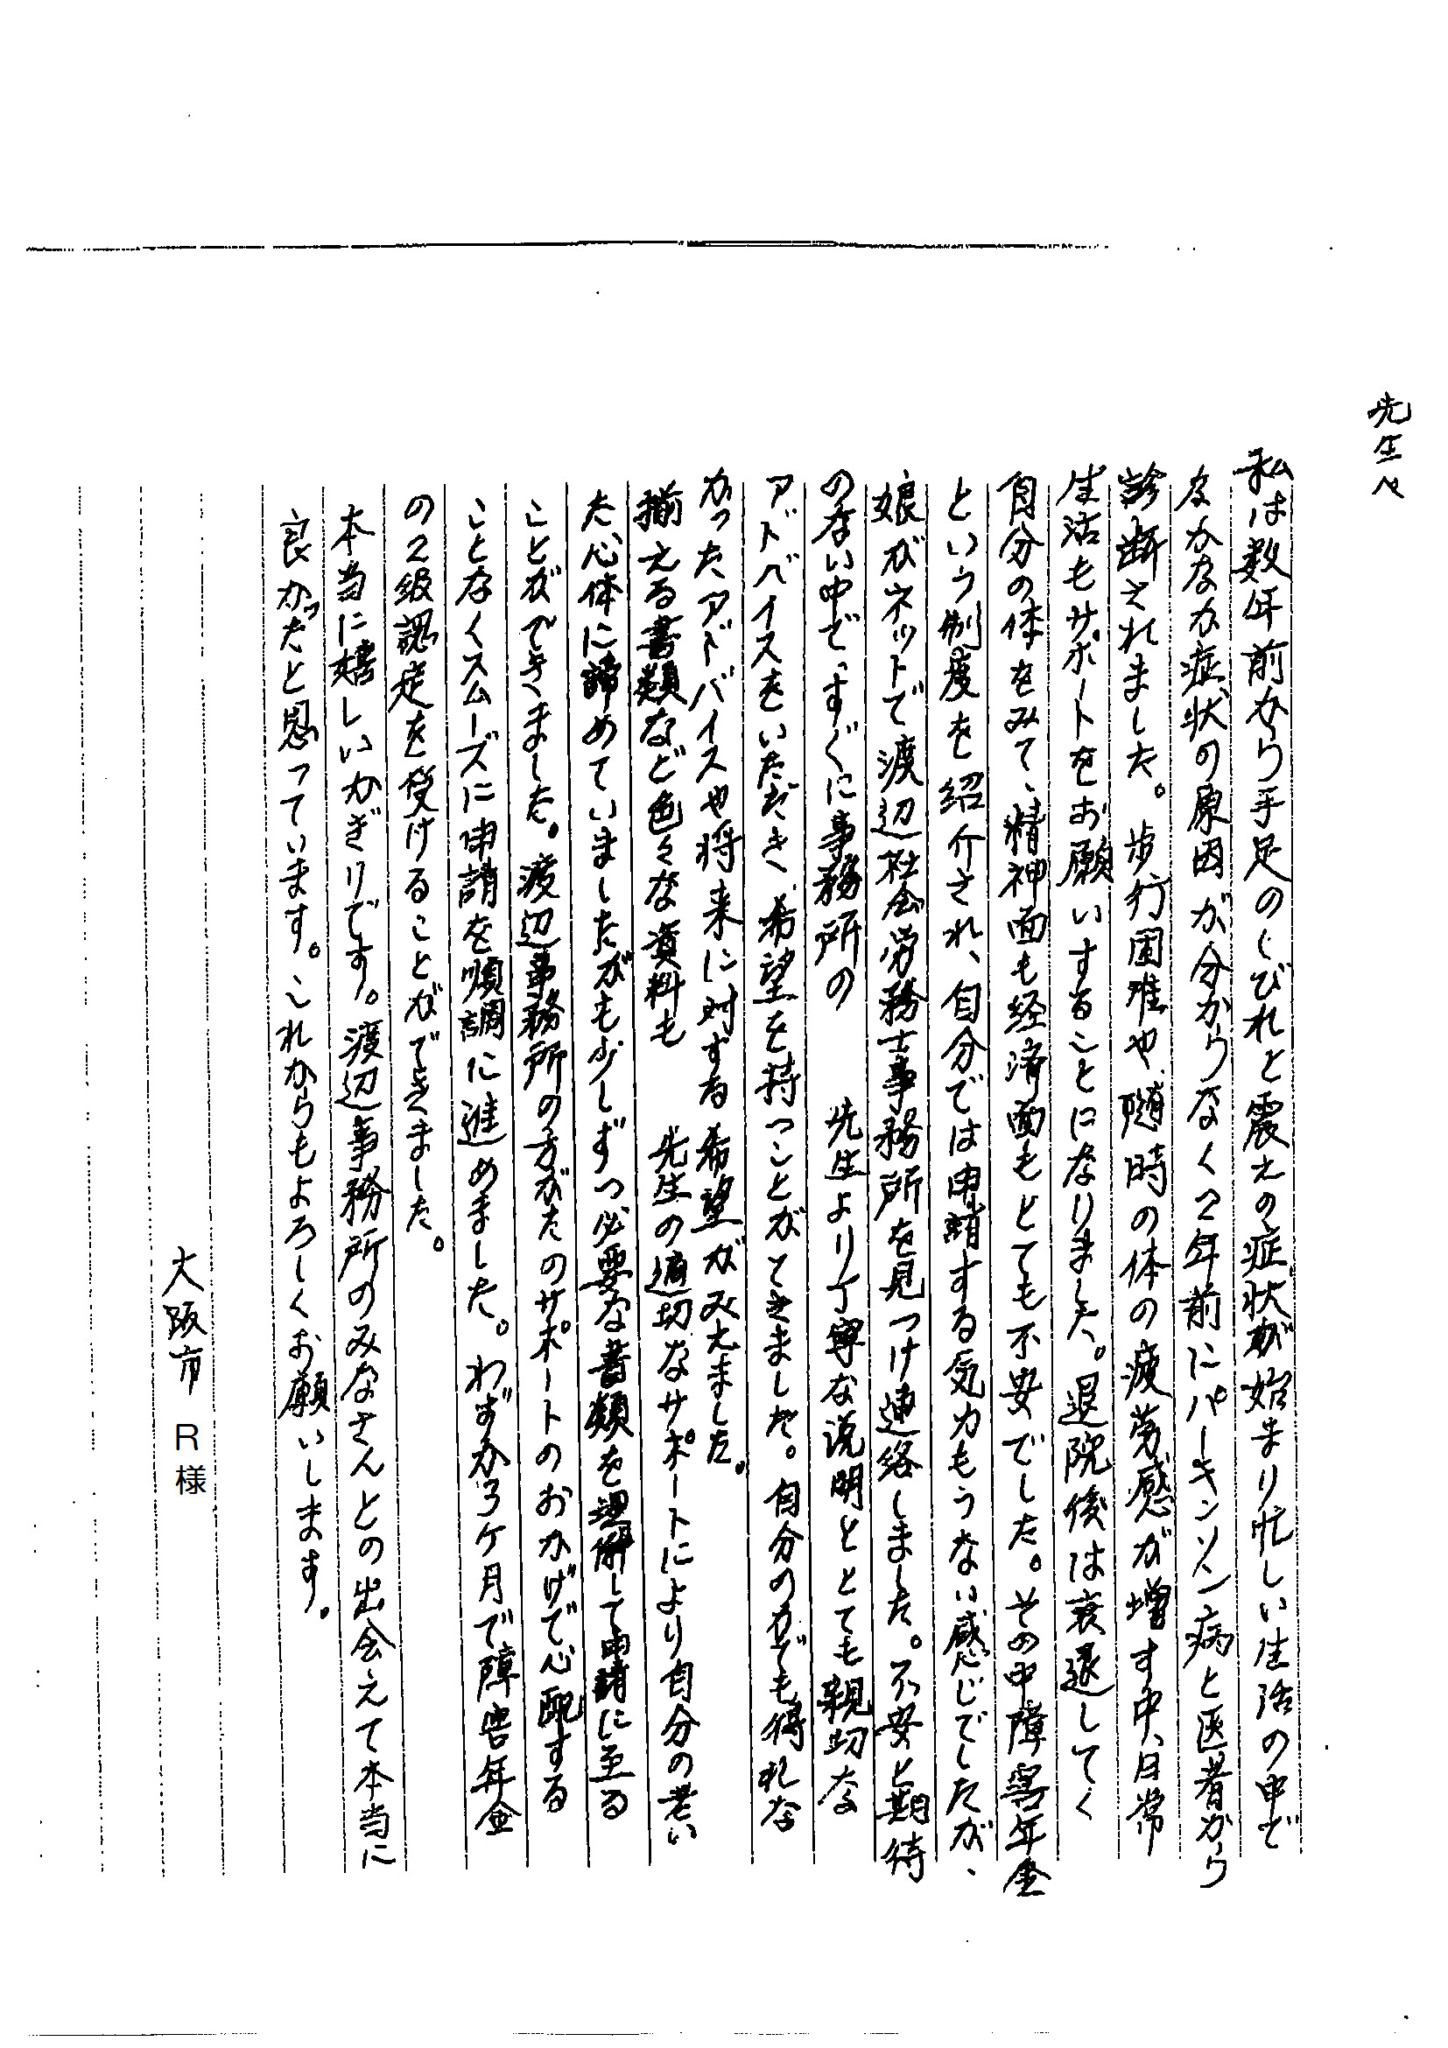 先生へ
私は数年前から手足のしびれと震えの症状が始まり忙しい生活の中で
なかなか症状の原因が分からなく2年前にパーキンソン病と医者から
診断されました。歩行困難や、随時の体の疲労感が増す中、日常
生活もサポートをお願いすることになりました。退院後は衰退してく
自分の体をみて、精神面も経済面もとても不安でした。その中障害年金
という制度を紹介され、自分では申請する気力もうない感じでしたが、
娘がネットで渡辺社会労務士事務所を見つけ連絡しました。不安と期待
のない中で、すぐに事務所の 先生より丁寧な説明ととても親切な
アドベイスをいただき、希望を持つことがときました。自分の力でも得れな
かったアドバイスや将来に対する希望がみえました。
揃える書類など色々な資料も 先生の適切なサポートにより自分の老い
た、心体に諦めていましたがも少しずつ必要な書類を理解して申請に至る
ことができました。渡辺事務所の方がたのサポートのおかげで心配する
ことなくスムーズに申請を順調に進めました。わずか3ケ月で障害年金
の2級認定を受けることができました。
本当に嬉しいかぎりです。渡辺事務所のみなさんとの出会えて本当に
良かったと思っています。これからもよろしくお願いします。
大阪市 R様